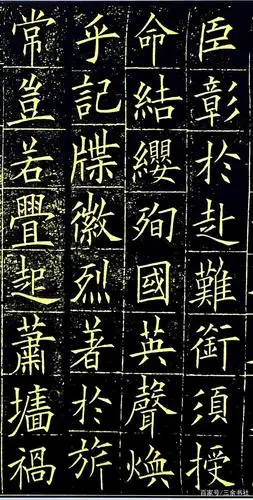 臣彰於赴難銜須授
命結纓殉國英聲煥
乎記牒徽烈著於旂
常豈若舋起蕭墻禍
百家号/三余书社